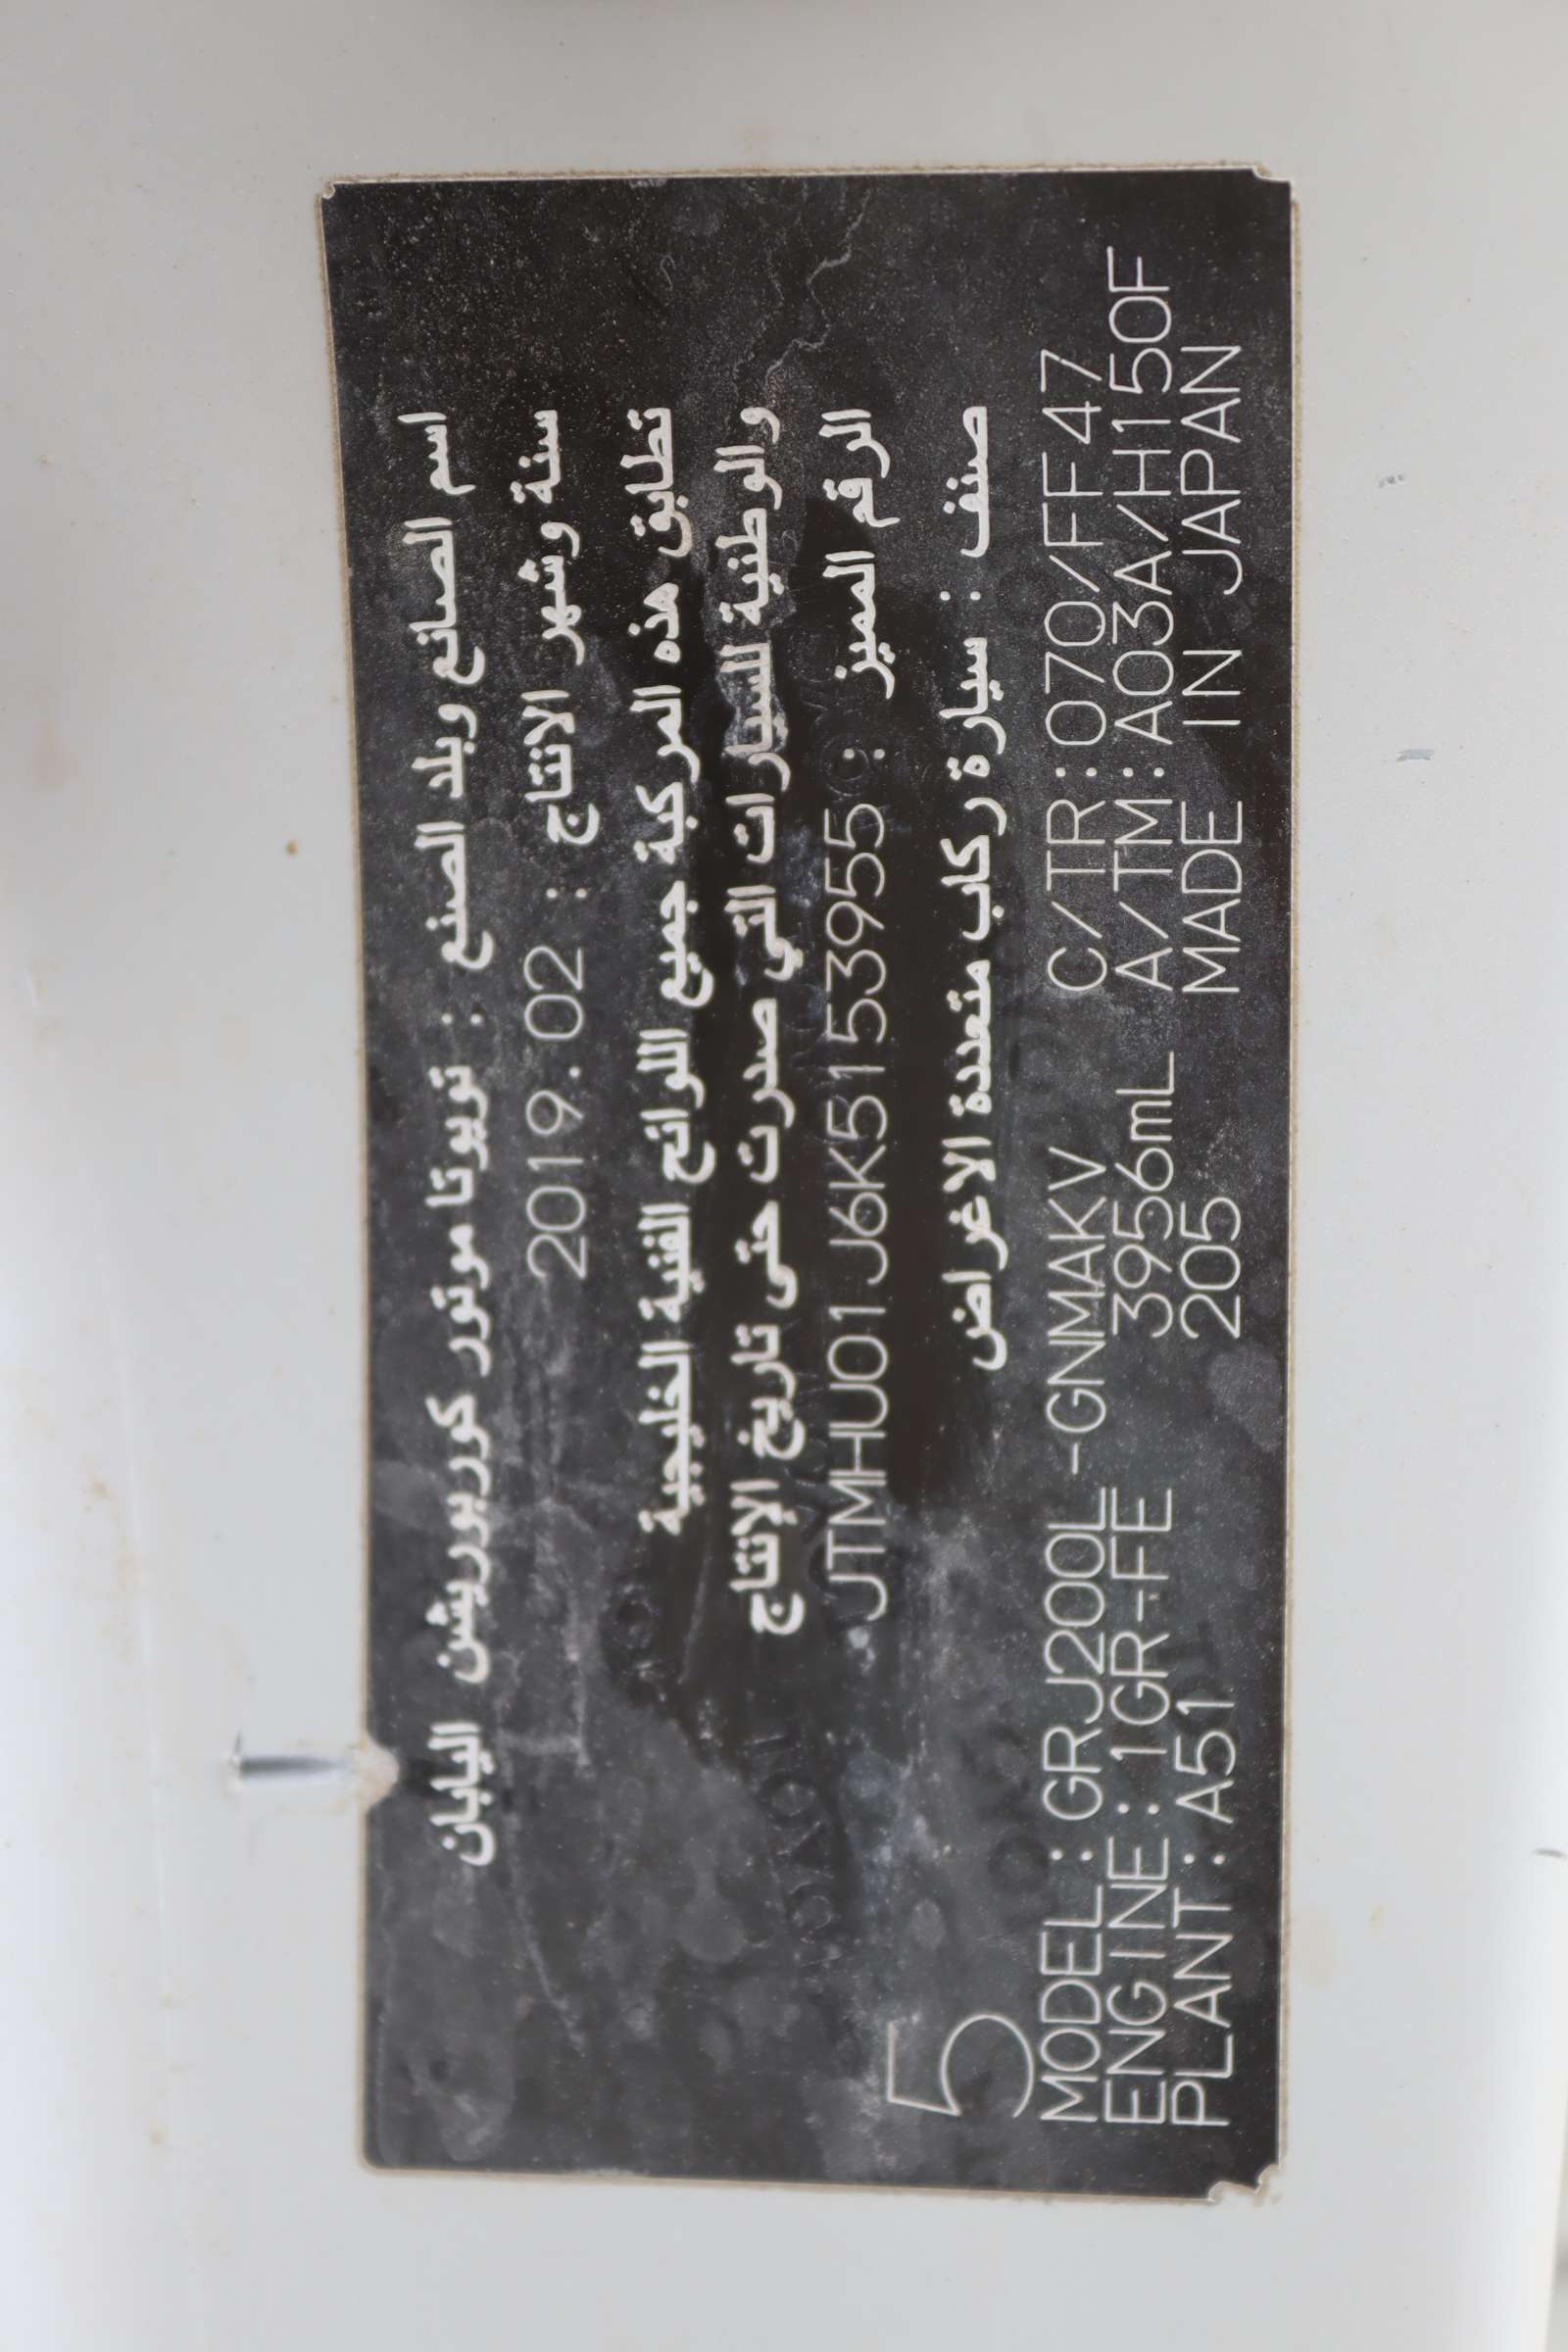 اسم الصانع وبلد الصنع : تويوتا موتور كوربوريشن اليابان
سنة وشهر الانتاج : 2019.02
تطابق هذه المركبة جميع اللوائح الفنية الخليجية
والوطنية للسيارات التي صدرت حتى تاريخ الإنتاج
الرقم المميز : JTMHU01J6K5153955
صنف : سيارة ركاب متعددة الاغراض
5
MODEL : GRJ200L -GNMAKV C/TR : 070/FF47
ENGINE : 1GR-FE 3956mL A/TM : A03A/H150F
PLANT : A51 205 MADE IN JAPAN